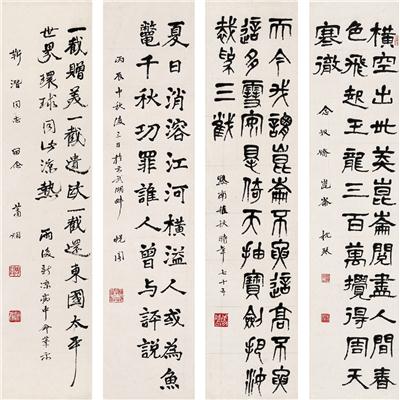 橫空出世莽崑崙閱盡人間春
色飛起玉龍三百萬攪得周天
寒徹
念奴嬌 崑崙
而今我謂崑崙不要這高不要
這多雪安得倚天抽寶劍把汝
裁為三截
時年七十
夏日消溶江河橫溢人或為魚
鱉千秋功罪誰人曾與評說
丙辰中秋後三日於玄武湖畔
一截贈美一截遺歐一截還東國太平
世界環球同此涼熱
雨後新涼
同志 留念 蕭嫻